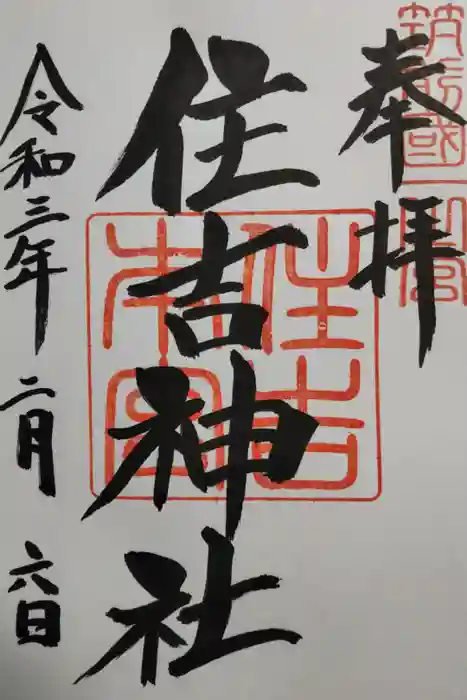 奉拝
筑前國一宮
住吉神社
住吉本宮
令和三年二月六日